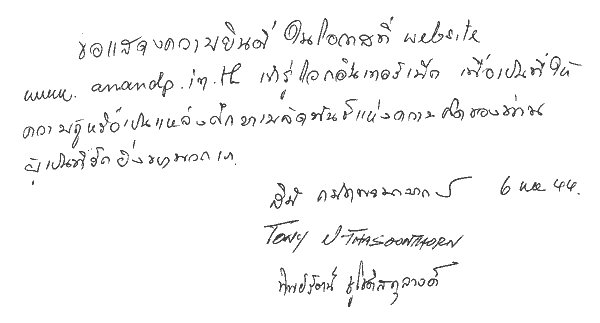 ขอแสดงความยินดี ในโอกาสที่ website
www.anandp.in.th เข้าสู่โลกอินเทอร์เน็ต เพื่อเป็นที่ให้
ความรู้หรือเป็นแหล่งศึกษาเมล็ดพันธุ์แห่งความคิดของท่าน
ผู้เป็นที่รักยิ่งของพวกเรา
6 พย 44.
TONY
ทิพย์รัตน์